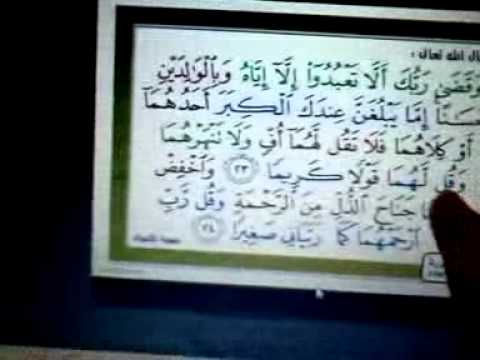 قال الله تعالى :
وَقَضَىٰ رَبُّكَ أَلَّا تَعْبُدُوٓا۟ إِلَّآ إِيَّاهُ وَبِٱلْوَٰلِدَيْنِ
إِحْسَٰنًا إِمَّا يَبْلُغَنَّ عِندَكَ ٱلْكِبَرَ أَحَدُهُمَآ
أَوْ كِلَاهُمَا فَلَا تَقُل لَّهُمَآ أُفٍّ وَلَا تَنْهَرْهُمَا
وَقُل لَّهُمَا قَوْلًا كَرِيمًا ٢٣ وَٱخْفِضْ
جَنَاحَ ٱلذُّلِّ مِنَ ٱلرَّحْمَةِ وَقُل رَّبِّ
ٱرْحَمْهُمَا كَمَا رَبَّيَانِى صَغِيرًا ٢٤